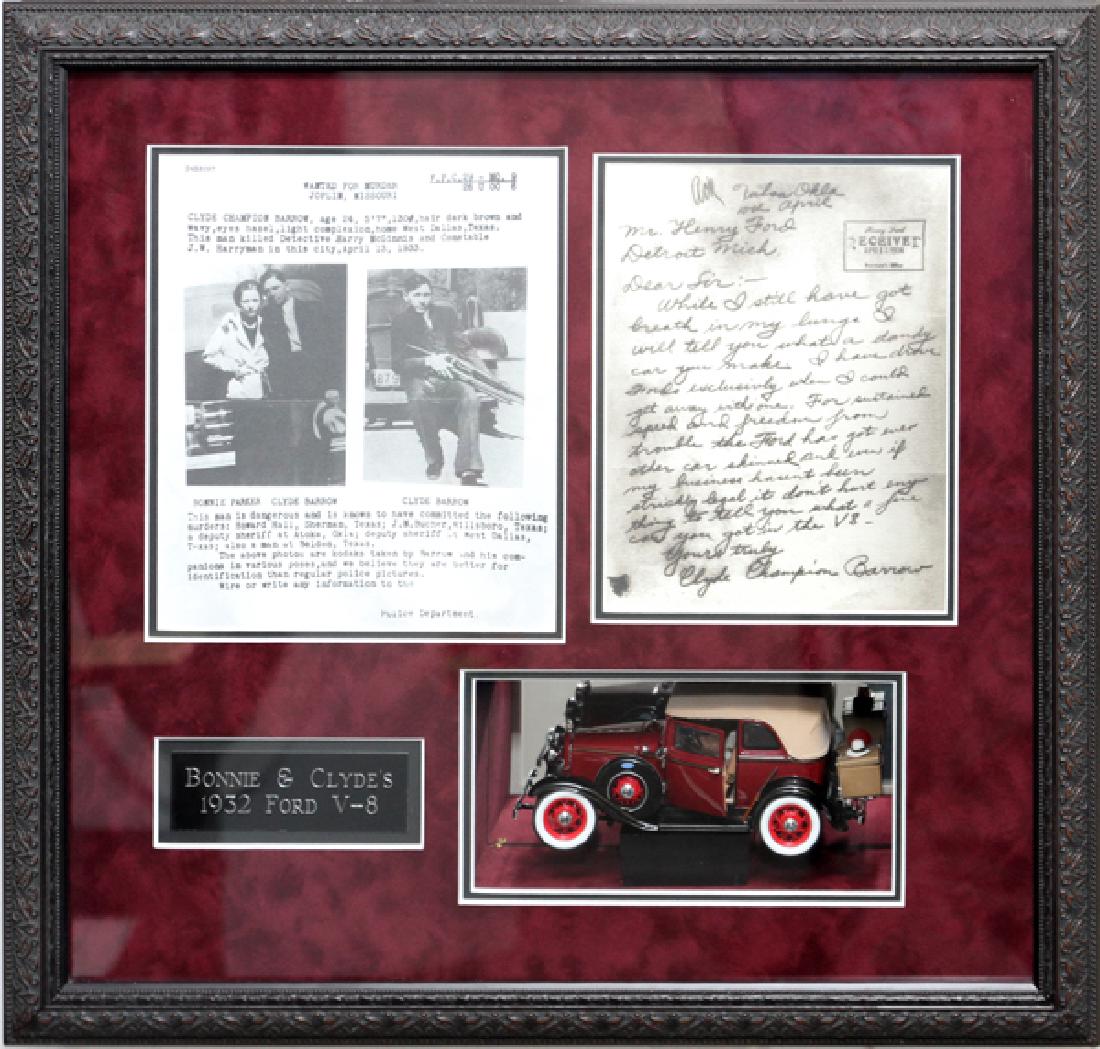 WANTED FOR MURDER
JOPLIN, MISSOURI
CLYDE CHAMPION BARROW, age 24, 5'7", 130#, hair dark brown and
wavy, eyes hazel, light complexion, home West Dallas, Texas.
This man killed Detective Harry McGinnis and Constable
J.W. Harryman in this city, april 13, 1933.
BONNIE PARKER CLYDE BARROW
CLYDE BARROW
This man is dangerous and is known to have committed the following
murders: Howard Hall, Sherman, Texas; J.N. Bucher, Hillsboro, Texas;
a deputy sheriff at Atoka, Okla; deputy sheriff at West Dallas,
Texas; also a man at Belden, Texas.
The above photos are kodaks taken by Barrow and his com-
panions in various poses, and we believe they are better for
identification than regular police pictures.
Wire or write any information to the
Police Department.
Tulsa Okla
10th April
Mr. Henry Ford
Detroit Mich.
RECEIVED
Dear Sir:—
While I still have got
breath in my lungs I
will tell you what a dandy
car you make. I have drove
Fords exclusivly when I could
get away with one. For sustained
speed and freedom from
trouble the Ford has got ever
other car skinned and even if
my business hasnt been
strickly legal it don't hurt eny
thing to tell you what a fine
car you got in the V8 -
Yours truly
Clyde Champion Barrow
BONNIE & CLYDE'S
1932 FORD V-8